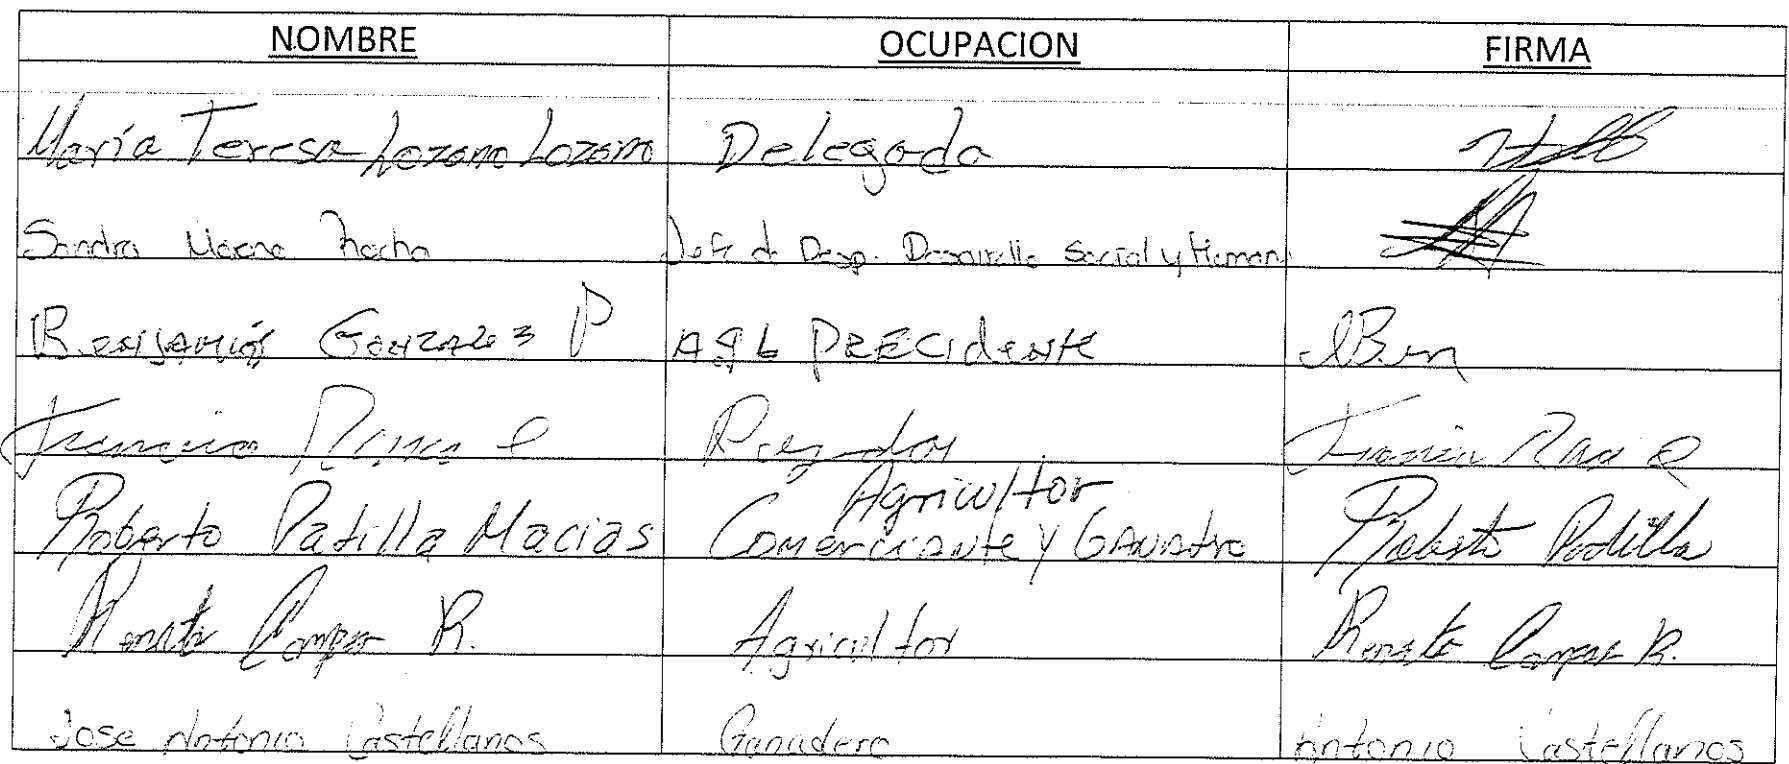 NOMBRE OCUPACION FIRMA
María Teresa Lozano Lozano Delegada
Sandra Jefe de Desp. Desarrollo Social y Human
Benjamín Gonzalez P AGL PRECidente
Francisco
Agricultor
Roberto Padilla Macias Comerciante Y GANADro Roberto Padilla
Renato Campos R. Agricultor Renato Campos R.
Jose Antonio Castellanos Ganadero Antonio Castellanos